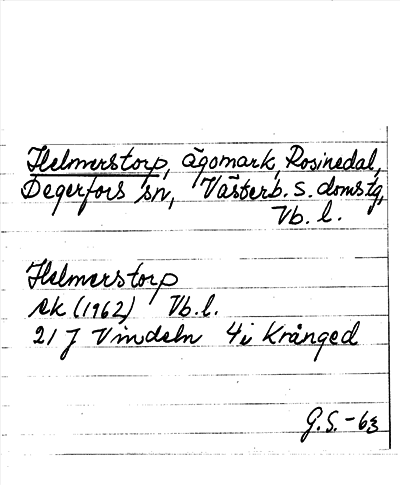 Helmerstorp, ägomark, Rosinedal,
Degerfors sn, Västerb. s. domstg,
Vb. l.
Helmerstorp
ek (1962) Vb. l.
21 J Vindeln 4i Krånged
G.S. -63